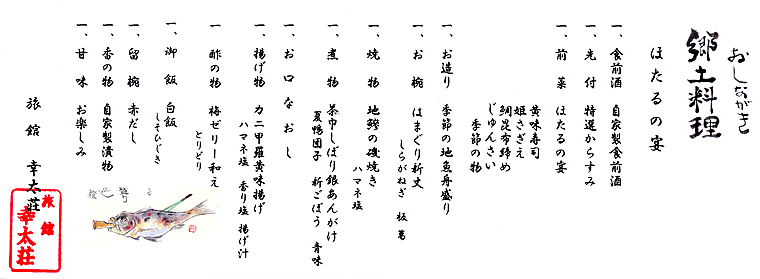 おしながき
郷土料理
ほたるの宴
一、食前酒 自家製食前酒
一、先付 特選からすみ
一、前菜 ほたるの宴
黄味寿司
姫さざえ
鯛昆布締め
じゅんさい
季節の物
一、お造り 季節の地魚舟盛り
一、お椀 はまぐり新丈
しらがねぎ 板蕨
一、焼物 地鰺の磯焼き
ハマネ塩
一、煮物 茶巾しぼり銀あんかけ
夏鴨団子 新ごぼう 青味
一、お口なおし
一、揚げ物 カニ甲羅黄味揚げ
ハマネ塩 香り塩 揚げ汁
一 酢の物 梅ゼリー和え
とりどり
一、御飯 白飯
しそひじき
一、留椀 赤だし
一、香の物 自家製漬物
一、甘味 お楽しみ
旅館 幸太荘
旅館
幸太荘